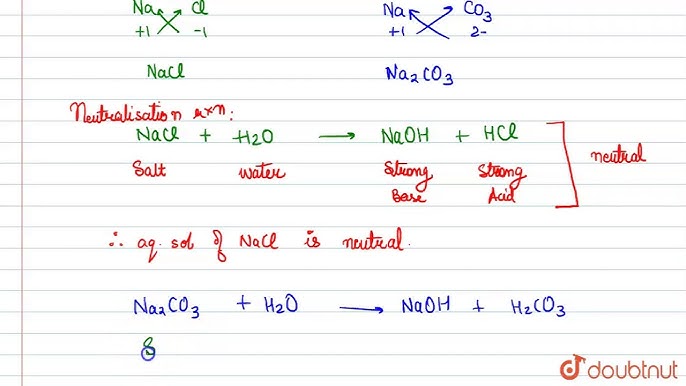 Na Cl Na CO3
+1 -1 +1 2-
NaCl Na2CO3
Neutralisation rxn:
NaCl + H2O → NaOH + HCl
Salt water Strong Base Strong Acid neutral
∴ aq. sol of NaCl is neutral.
Na2CO3 + H2O → NaOH + H2CO3
S
doubtnut